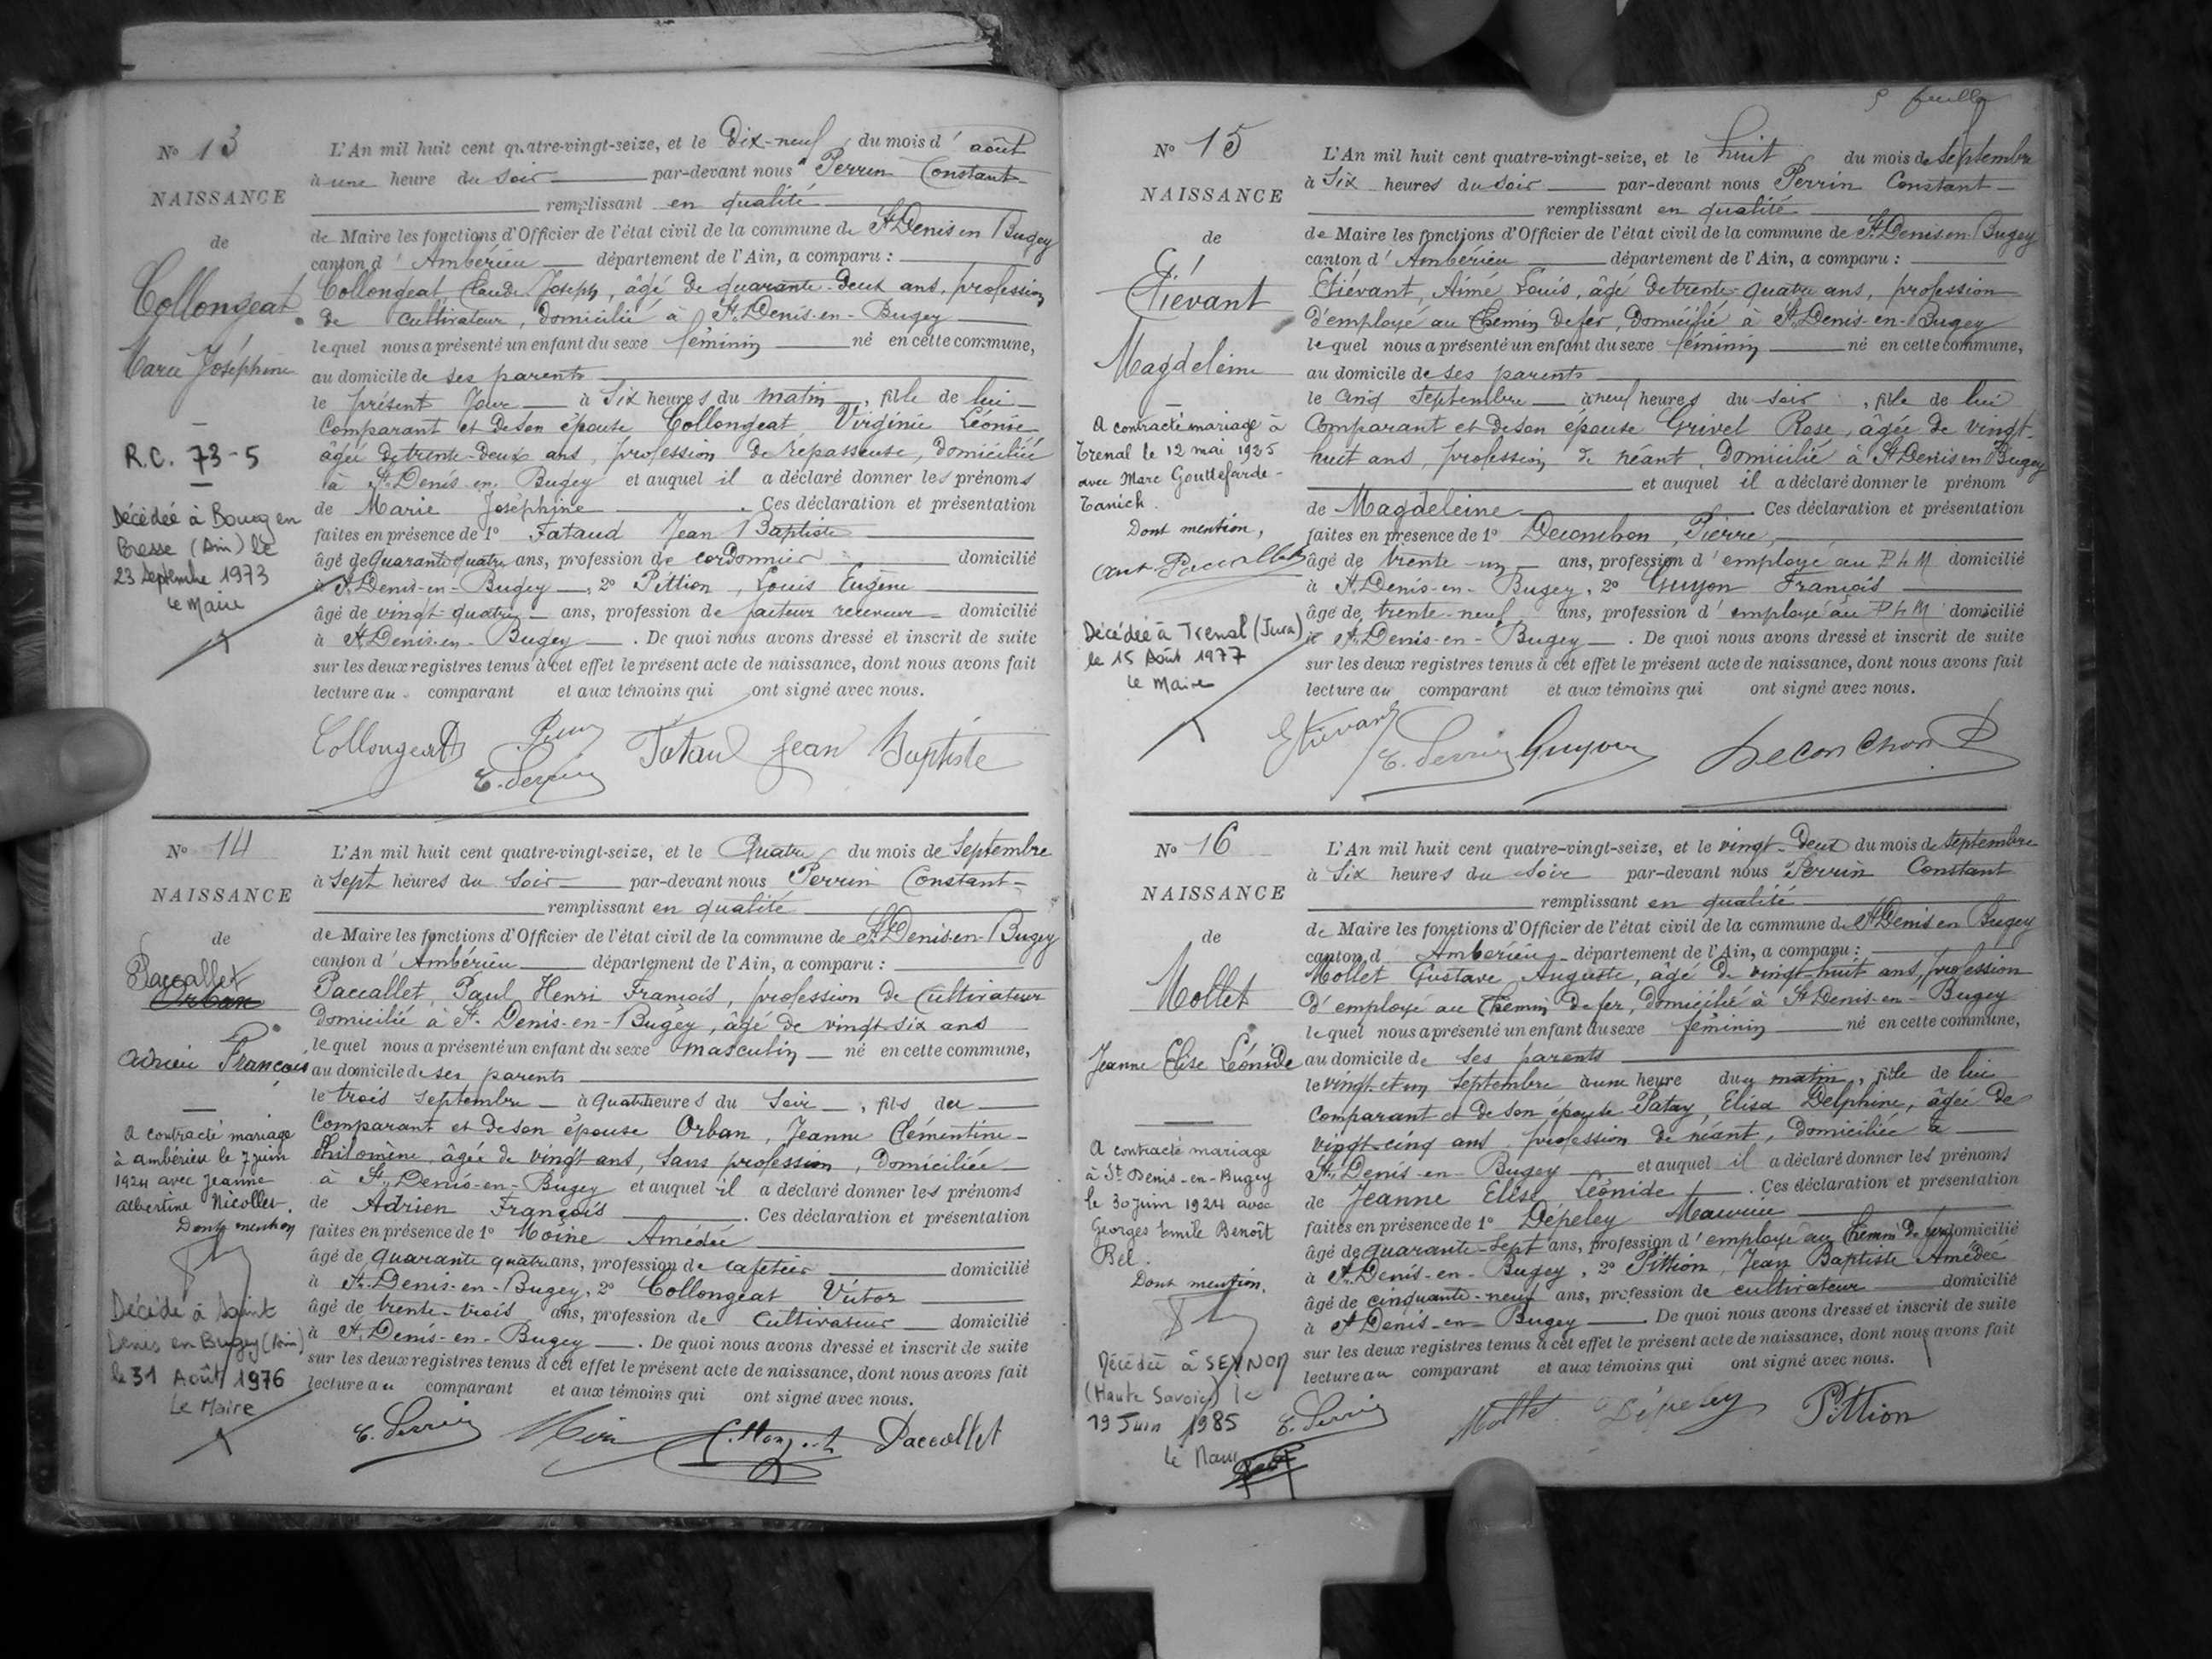 Nº 13
NAISSANCE
de
Collongeat
Marie Joséphine
R.C. 73-5
Décédée à Bourg en
Bresse (Ain) le
23 Septembre 1973
Le Maire
L'An mil huit cent quatre-vingt-seize, et le Dix-neuf du mois d' août
à une heure du soir par-devant nous Perrin Constant
remplissant en qualité
de Maire les fonctions d'Officier de l'état civil de la commune de St Denis en Bugey
canton d' Ambérieu département de l'Ain, a comparu :
Collongeat Claude Joseph, âgé de quarante-deux ans, profession
de cultivateur, domicilié à St Denis-en-Bugey
lequel nous a présenté un enfant du sexe féminin né en cette commune,
au domicile de ses parents
le présent jour à six heures du matin, fille de lui
Comparant et de son épouse Collongeat Virginie Léonie
âgée de trente-deux ans, profession de repasseuse, domiciliée
à St Denis-en-Bugey et auquel il a déclaré donner les prénoms
de Marie Joséphine. Ces déclaration et présentation
faites en présence de 1º Fataud Jean Baptiste
âgé de quarante quatre ans, profession de cordonnier domicilié
à St Denis-en-Bugey, 2º Pittion, Louis Eugène
âgé de vingt-quatre ans, profession de facteur receveur domicilié
à St Denis-en-Bugey. De quoi nous avons dressé et inscrit de suite
sur les deux registres tenus à cet effet le présent acte de naissance, dont nous avons fait
lecture au comparant et aux témoins qui ont signé avec nous.
Collongeat
C. Perrin Fataud Jean Baptiste
Nº 14
NAISSANCE
de
Paccallet
Orban
Adrien François
A contracté mariage
à Ambérieu le 7 juin
1924 avec Jeanne
Albertine Nicollet.
Dont mention
Décédé à Saint
Denis en Bugey (Ain)
le 31 Août 1976
Le Maire
L'An mil huit cent quatre-vingt-seize, et le Quatre du mois de Septembre
à sept heures du soir par-devant nous Perrin Constant
remplissant en qualité
de Maire les fonctions d'Officier de l'état civil de la commune de St Denis-en-Bugey
canton d' Ambérieu département de l'Ain, a comparu :
Paccallet, Paul Henri François, profession de Cultivateur
domicilié à St Denis-en-Bugey, âgé de vingt-six ans
lequel nous a présenté un enfant du sexe masculin né en cette commune,
au domicile de ses parents
le trois septembre à quatre heures du soir, fils du
Comparant et de son épouse Orban, Jeanne Clémentine
Philomène, âgée de vingt ans, sans profession, domiciliée
à St Denis-en-Bugey et auquel il a déclaré donner les prénoms
de Adrien François. Ces déclaration et présentation
faites en présence de 1º Moine Amédée
âgé de quarante quatre ans, profession de cafetier domicilié
à St Denis-en-Bugey, 2º Collongeat Victor
âgé de trente-trois ans, profession de cultivateur domicilié
à St Denis-en-Bugey. De quoi nous avons dressé et inscrit de suite
sur les deux registres tenus à cet effet le présent acte de naissance, dont nous avons fait
lecture au comparant et aux témoins qui ont signé avec nous.
C. Perrin Paccallet
5 feuille
Nº 15
NAISSANCE
de
Etiévant
Magdeleine
A contracté mariage à
Trenal le 12 mai 1925
avec Marc Gouttefarde-
Tanich.
Dont mention,
Décédée à Trenal (Jura)
le 15 Août 1977
Le Maire
L'An mil huit cent quatre-vingt-seize, et le huit du mois de Septembre
à six heures du soir par-devant nous Perrin Constant
remplissant en qualité
de Maire les fonctions d'Officier de l'état civil de la commune de St Denis-en-Bugey
canton d' Ambérieu département de l'Ain, a comparu :
Etiévant, Aimé Louis, âgé de trente-quatre ans, profession
d'employé au Chemin de fer, domicilié à St Denis-en-Bugey
lequel nous a présenté un enfant du sexe féminin né en cette commune,
au domicile de ses parents
le cinq septembre à neuf heures du soir, fille de lui
Comparant et de son épouse Grivel Rose, âgée de vingt-
huit ans, profession de néant, domicilié à St Denis en Bugey
et auquel il a déclaré donner le prénom
de Magdeleine. Ces déclaration et présentation
faites en présence de 1º Deconchon, Pierre,
âgé de trente-un ans, profession d'employé au PLM domicilié
à St Denis-en-Bugey, 2º Guyon François
âgé de trente-neuf ans, profession d'employé au PLM domicilié
à St Denis-en-Bugey. De quoi nous avons dressé et inscrit de suite
sur les deux registres tenus à cet effet le présent acte de naissance, dont nous avons fait
lecture au comparant et aux témoins qui ont signé avec nous.
Etiévant
C. Perrin Guyon Deconchon P
Nº 16
NAISSANCE
de
Mollet
Jeanne Elise Léonide
A contracté mariage
à St Denis-en-Bugey
le 30 juin 1924 avec
Georges Emile Benoît
Bel.
Dont mention.
Décédée à SEYNOD
(Haute Savoie) le
19 Juin 1985
Le Maire
L'An mil huit cent quatre-vingt-seize, et le vingt-deux du mois de septembre
à six heures du soir par-devant nous Perrin Constant
remplissant en qualité
de Maire les fonctions d'Officier de l'état civil de la commune de St Denis en Bugey
canton d Ambérieu département de l'Ain, a comparu :
Mollet Gustave Auguste, âgé de vingt-huit ans, profession
d'employé au Chemin de fer, domicilié à St Denis-en-Bugey
lequel nous a présenté un enfant du sexe féminin né en cette commune,
au domicile de ses parents
le vingt et un septembre à une heure du matin, fille de lui
comparant et de son épouse Patay, Elisa Delphine, âgée de
vingt-cinq ans, profession de néant, domiciliée à
St Denis-en-Bugey et auquel il a déclaré donner les prénoms
de Jeanne Elise Léonide. Ces déclaration et présentation
faites en présence de 1º Dépeley Maurice
âgé de quarante-sept ans, profession d'employé au Chemin de fer domicilié
à St Denis-en-Bugey, 2º Pittion, Jean Baptiste Amédée
âgé de cinquante-neuf ans, profession de cultivateur domicilié
à St Denis-en-Bugey. De quoi nous avons dressé et inscrit de suite
sur les deux registres tenus à cet effet le présent acte de naissance, dont nous avons fait
lecture au comparant et aux témoins qui ont signé avec nous.
C. Perrin Mollet Dépeley Pittion